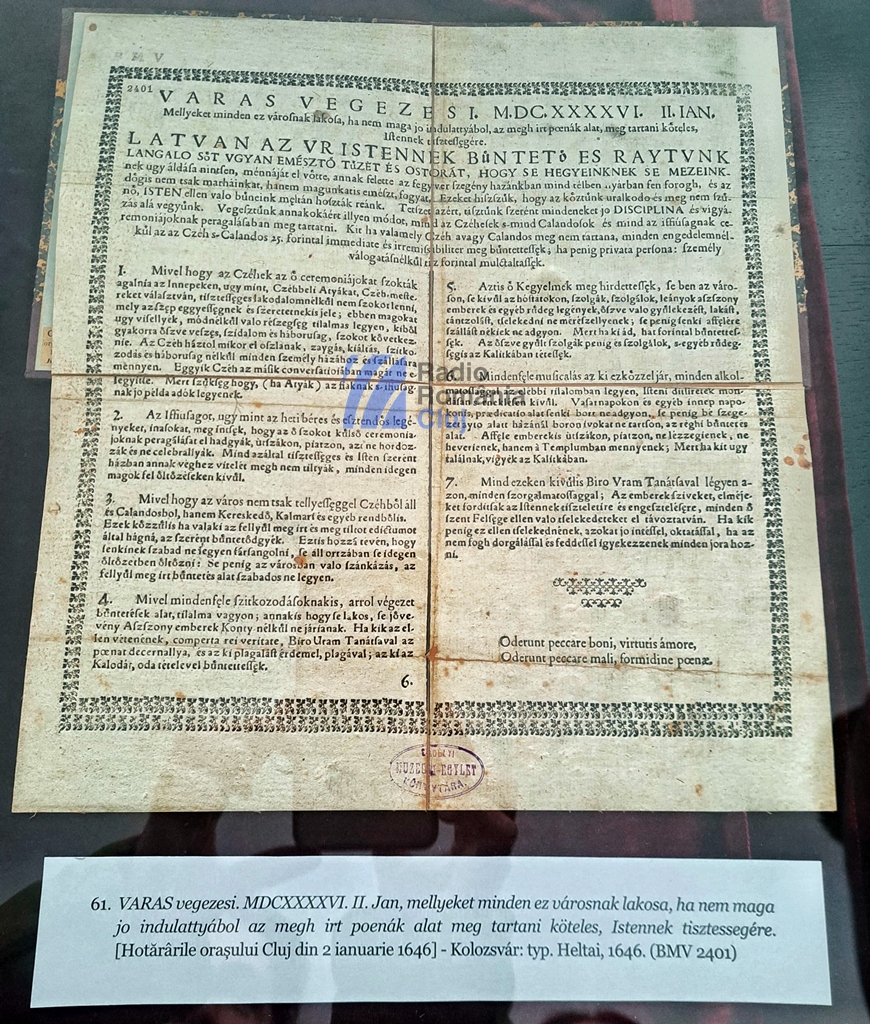 B M V
2401
VARAS VEGEZESI. M.DC.XXXXVI. II. IAN.
Mellyeket minden ez városnak lakosa, ha nem maga jo indulattyából, az megh irt poenák alat, meg tartani köteles,
Istennek tisztességére.
LATVAN AZ VR ISTENNEK BűNTETő ES RAYTVNK
LANGALO SŐT VGYAN EMÉSZTŐ TŰZÉT ÉS OSTORÁT, HOGY SE HEGYEINKNEK SE MEZEINK-
nek ugy áldása nintsen, mennáját el vötte, annak felette az fegyver szegény hazánkban mind télben nyárban fen forogh, és az
dögis nem tsak marháinkat, hanem magunkatis emészt, fogyat. Ezeket hiszszük, hogy az köztünk uralkodo és meg nem szű-
nő, ISTEN ellen valo bűneink méltán hoszták reánk. Tetszet azért, tisztünk szerént mindeneket jo DISCIPLINA és vigyá-
zás alá vegyünk. Vegesztünk annakokáért illyen módot, mind az Czéhesek s-mind Calandosok és mind az iffiuságnak ce-
remoniájoknak peragálásában meg tartatni. Kit ha valamely Czéh avagy Calandos meg nem tartana, minden engedelemnél-
kül az az Czéh s-Calandos 25. forintal immediate és irremissibiliter meg bűntettessék; ha penig privata persona: személy
válogatásnélkül 12 forintal mulctaltassék.
1. Mivel hogy az Czéhek az ő ceremoniájokat szokták
agalnia az Innepeken, ugy mint, Czéhbeli Atyákat, Czéh-meste-
reket választván, tisztességes lakodalomnélkül nem szokot lenni,
mely az szép eggyességnek és szeretetnek is jele; ebben magokat
ugy visellyék, módnélkül valo részegség tilalmas legyen, kiből
gyakorta öszve veszés, szidalom és háboruság, szokot következ-
nie. Az Czéh háztol mikor el oszlanak, zaygás, kiáltás, szitko-
zodás és háboruság nélkül minden személy házához és szállására
mennyen. Eggyik Czéh az másik conversatioiban magát ne e-
legyitse. Mert szükség hogy, (ha Atyák) az fiaknak s-iffiusag-
nak jo példa adók legyenek.
2. Az Iffiuságot, ugy mint az heti béres és esztendős legé-
nyeket, inasokat, meg intsék, hogy az ő szokot külső ceremonia-
joknak peragálását el hadgyák, utszákon, piatzon, azt ne hordoz-
zák és ne celebrallyák. Mind azáltal tisztességes és Isten szerént
házban annak véghez vitelét megh nem tiltyák, minden idegen
magok fel öltözéseken kivül.
3. Mivel hogy az város nem tsak tellyességgel Czéhből áll
és Calandosbol, hanem Kereskedő, Kalmár és egyéb rendbőlis.
Ezek közzülis ha valaki az fellyül meg irt és meg tiltot edictumot
által hágná, az szerént bűntetődgyék. Eztis hozzá tevén, hogy
senkinek szabad ne legyen farsangolni, se áll orrzában se idegen
öltözetben öltözni: Se penig az városban valo szánkázás, az
fellyül meg irt bűntetés alat szabados ne legyen.
4. Mivel mindenféle szitkozodásoknakis, arrol végezet
bűntetések alat, tilalma vagyon; annakis hogy se lakos, se jöve-
vény Aszszony emberek Konty nélkül ne járianak. Ha kik az el-
len vétenének, comperta rei veritate, Biro Uram Tanátsával az
poenat decernallya, és az ki plagalást érdemel, plagával; az ki az
Kalodár, oda tételevel bűntettessék.
6.
5. Aztis ő Kegyelmek meg hirdettessék, se ben az város-
son, se kivül az hóstatokon, szolgák, szolgálok, leányok aszszony
emberek és egyéb rüdeg legények, öszve valo gyülekezést, lakást,
tántzolást, tselekedni ne mérészellyenek; se penig senki asfélére
szállást nékiek ne adgyon. Mert ha ki ád, hat forintal büntettes-
sék. Az öszve gyült szolgák penig és szolgálok, s-egyéb rüdeg-
segis az Kalitkában tétessék.
6. Mindenféle musicalás az ki ezközzel jár, minden alkol-
matosságokban tilalomban legyen, Isteni ditsiretek mon-
dásán kivül. Vasarnapokon és egyéb innep napo-
kontis, praedicatio alat senki bort ne adgyon. se penig be szege-
zet ayto alatt házánál boron ivokat ne tartson, az réghi bűntetés
alat. Afféle emberekis utszákon, piatzon, ne lézzegienek, ne
heverienek, hanem à Templumban mennyenek; Mert ha kit ugy
találnak, vigyék az Kalitkában.
7. Mind ezeken kivülis Biro Vram Tanátsaval légyen a-
zon, minden szorgalmatossaggal; Az emberek sziveket, elméje-
ket fordítsák az Istennek tiszteletire és engesztelésre, minden ő
szent Felsége ellen valo tselekedeteket el távoztatván. Ha kik
penig ez ellen tselekednének, azokat jo intéssel, oktatással, ha az
nem fogh dorgálással és feddéssel igyekezzenek minden jora hoz-
ni.
Oderunt peccare boni, virtutis ámore,
Oderunt peccare mali, formidine poenæ.
ERDÉLYI
MUZEUM-EGYLET
KÖNYVTÁRA.
Radio
România
Cluj
61. VARAS vegezesi. MDCXXXXVI. II. Jan, mellyeket minden ez városnak lakosa, ha nem maga
jo indulattyábol az megh irt poenák alat meg tartani köteles, Istennek tisztességére.
[Hotărârile orașului Cluj din 2 ianuarie 1646] - Kolozsvár: typ. Heltai, 1646. (BMV 2401)